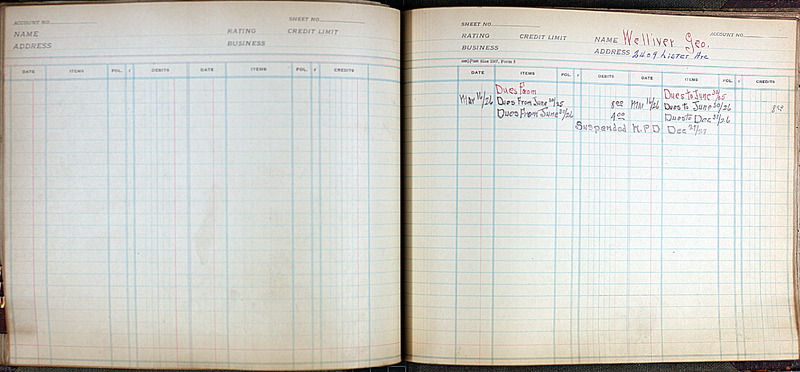 SHEET NO.
ACCOUNT NO.
NAME RATING CREDIT LIMIT
ADDRESS BUSINESS
DATE ITEMS FOL. DEBITS DATE ITEMS FOL. CREDITS
SHEET NO.
ACCOUNT NO.
RATING CREDIT LIMIT NAME Welliver Geo.
BUSINESS ADDRESS 2409 Lister Ave
DATE ITEMS FOL. DEBITS DATE ITEMS FOL. CREDITS
Dues From Dues to June 30/25
Mar 16/26 Dues From June 30/25 8 00 Mar 16/26 Dues to June 30/26 8 00
Dues From June 30/26 4 00 Dues to Dec 31/26
Suspended N.P.D Dec